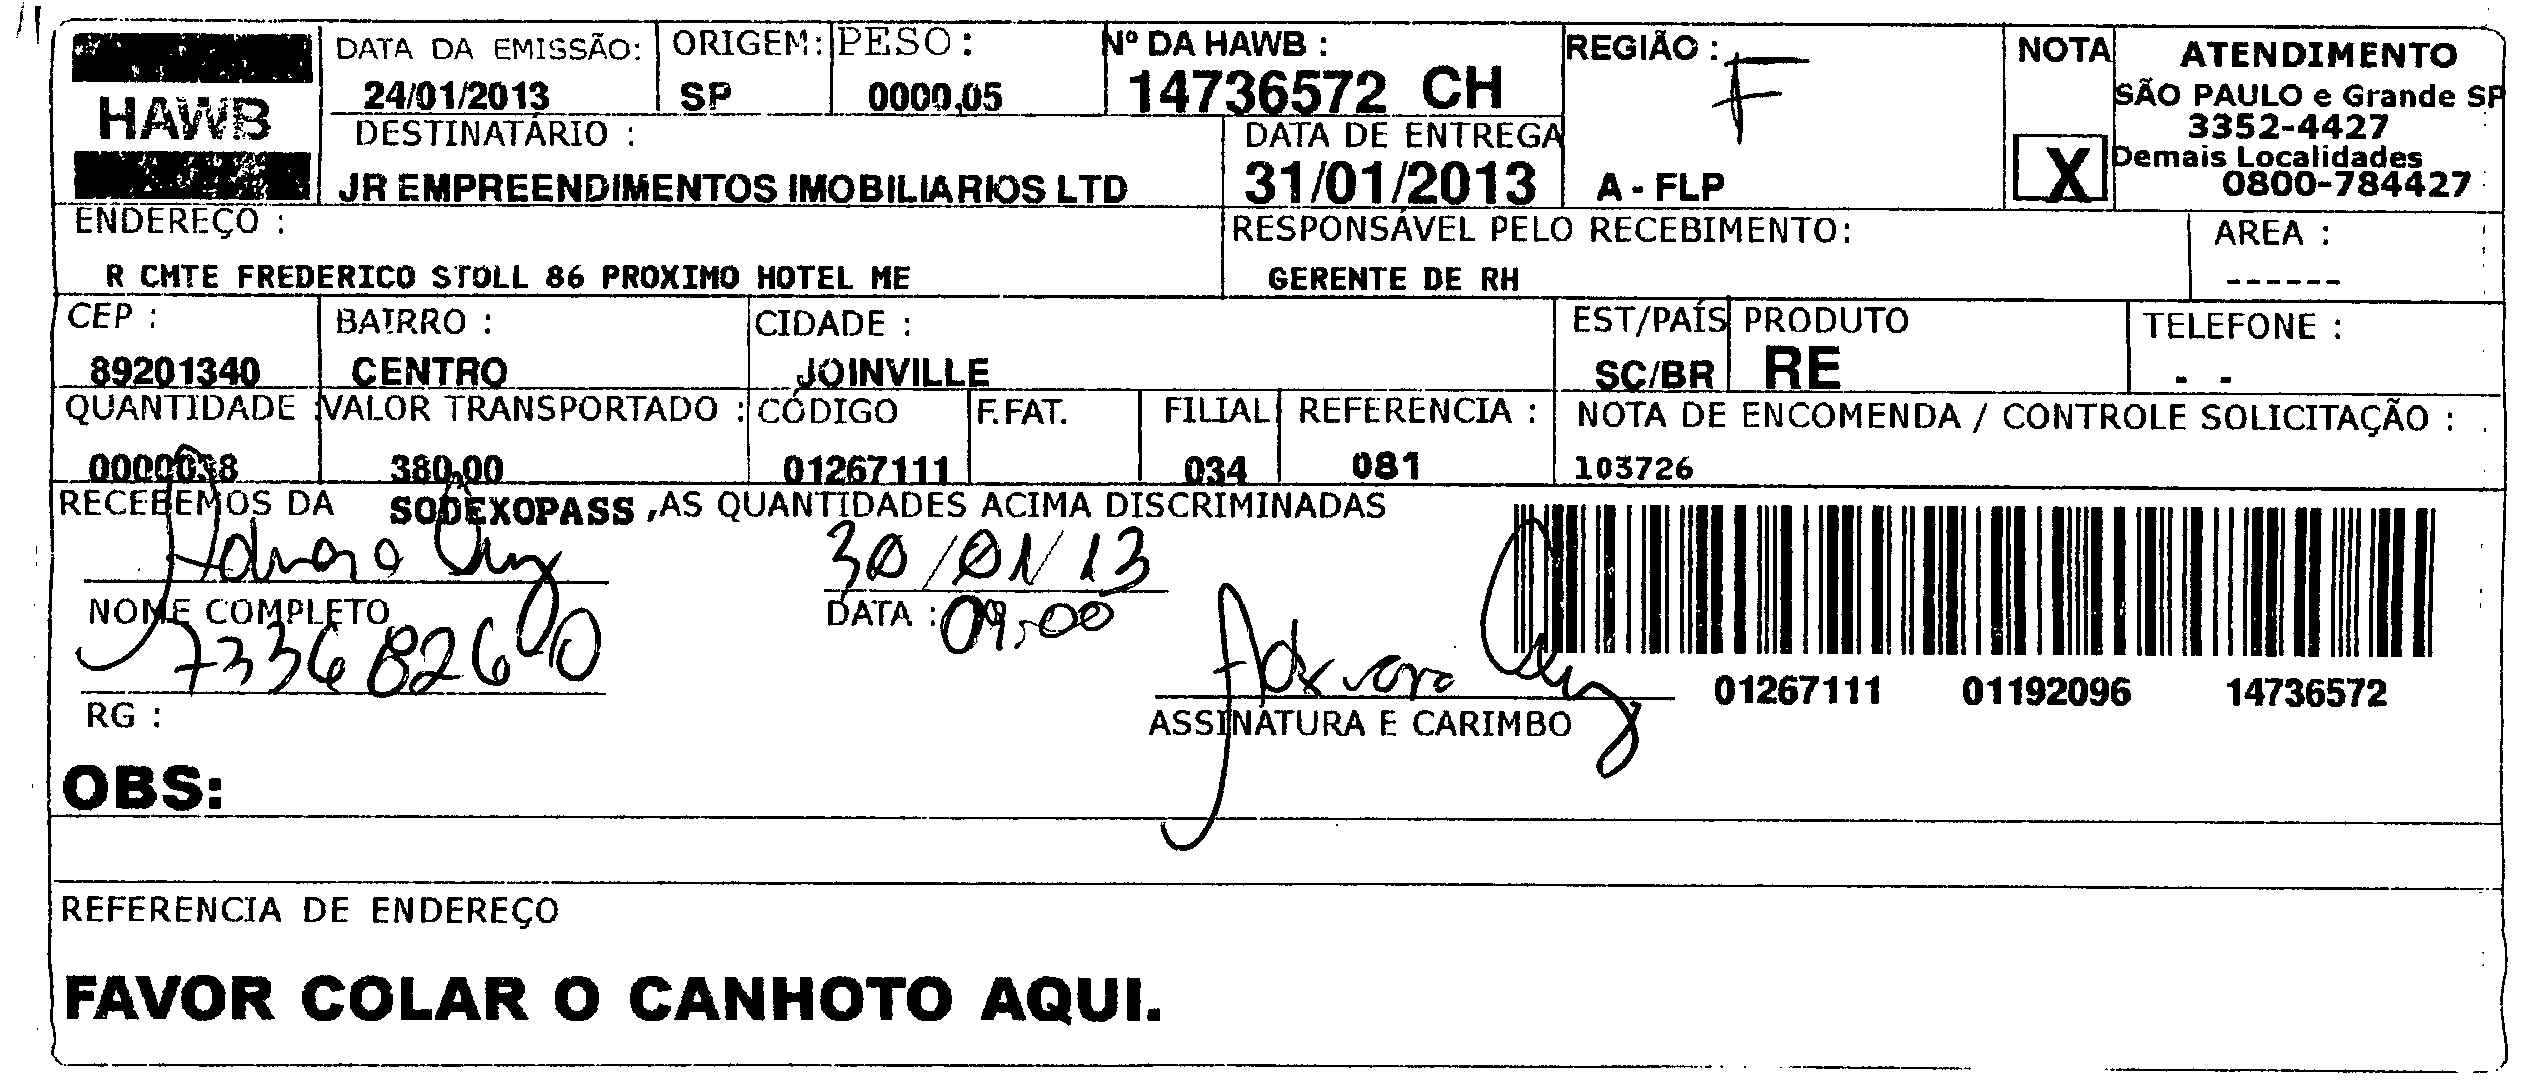 HAWB
DATA DA EMISSÃO:
24/01/2013
ORIGEM:
SP
PESO :
0000,05
Nº DA HAWB :
14736572 CH
REGIÃO :
F
A - FLP
NOTA
X
ATENDIMENTO
SÃO PAULO e Grande SP
3352-4427
Demais Localidades
0800-784427
DESTINATÁRIO :
JR EMPREENDIMENTOS IMOBILIARIOS LTD
DATA DE ENTREGA
31/01/2013
ENDEREÇO :
R CMTE FREDERICO STOLL 86 PROXIMO HOTEL ME
RESPONSÁVEL PELO RECEBIMENTO:
GERENTE DE RH
AREA :
------
CEP :
89201340
BAIRRO :
CENTRO
CIDADE :
JOINVILLE
EST/PAÍS
SC/BR
PRODUTO
RE
TELEFONE :
- -
QUANTIDADE
0000038
VALOR TRANSPORTADO :
380,00
CÓDIGO
01267111
F.FAT.
FILIAL
034
REFERENCIA :
081
NOTA DE ENCOMENDA / CONTROLE SOLICITAÇÃO :
103726
RECEBEMOS DA SODEXOPASS ,AS QUANTIDADES ACIMA DISCRIMINADAS
30/01/13
NOME COMPLETO
DATA : 09:00
73368260
RG :
ASSINATURA E CARIMBO
01267111 01192096 14736572
OBS:
REFERENCIA DE ENDEREÇO
FAVOR COLAR O CANHOTO AQUI.